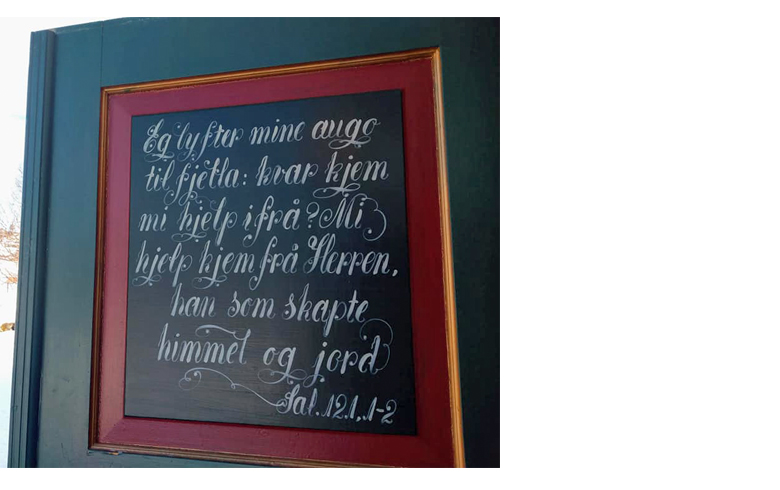 Eg lyfter mine augo
til fjella: kvar kjem
mi hjelp ifrå? Mi
hjelp kjem frå Herren,
han som skapte
himmel og jord
Sal. 121, 1-2